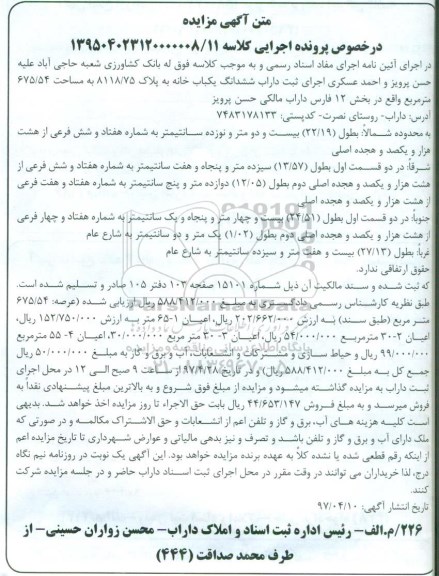 متن آگهی مزایده
درخصوص پرونده اجرایی کلاسه ۱۳۹۵۰۴۰۲۳۱۲۰۰۰۰۰۰۸/۱۱
در اجرای آئین نامه اجرای مفاد اسناد رسمی و به موجب کلاسه فوق له بانک کشاورزی شعبه حاجی آباد علیه
حسن پرویز و احمد عسکری اجرای ثبت داراب ششدانگ یکباب خانه به پلاک ۸۱۱۸/۷۵ به مساحت ۶۷۵/۵۴
مترمربع واقع در بخش ۱۲ فارس داراب مالکی حسن پرویز
آدرس: داراب- روستای نصرت- کدپستی: ۷۴۸۳۱۷۸۱۳۳
به محدوده شمالاً: بطول (۲۲/۱۹) بیست و دو متر و نوزده سانتیمتر به شماره هفتاد و شش فرعی از هشت
هزار و یکصد و هجده اصلی
شرقاً: در دو قسمت اول بطول (۱۳/۵۷) سیزده متر و پنجاه و هفت سانتیمتر به شماره هفتاد و شش فرعی از
هشت هزار و یکصد و هجده اصلی دوم بطول (۱۲/۰۵) دوازده متر و پنج سانتیمتر به شماره هفتاد و هفت فرعی
از هشت هزار و یکصد و هجده اصلی
جنوباً: در دو قسمت اول بطول (۲۴/۵۱) بیست و چهار متر و پنجاه و یک سانتیمتر به شماره هفتاد و چهار فرعی
از هشت هزار و یکصد و هجده اصلی دوم بطول (۱/۰۲) یک متر و دو سانتیمتر به شارع عام
غرباً: بطول (۲۷/۱۳) بیست و هفت متر و سیزده سانتیمتر به شارع عام
حقوق ارتفاقی ندارد.
که ثبت شده و سند مالکیت آن ذیل شماره ۱۵۱۰۱ صفحه ۱۰۳ دفتر ۱۰۵ صادر و تسلیم شده است.
طبق نظریه کارشناس رسمی دادگستری به مبلغ ۵۸۸/۴۱۲/۰۰۰ ریال ارزیابی شده (عرصه: ۶۷۵/۵۴
متر مربع (طبق سند) به ارزش ۲۰۲/۶۶۲/۰۰۰ ریال، اعیان ۱-۶۵ متر به ارزش ۱۵۲/۷۵۰/۰۰۰ ریال،
اعیان ۲-۳۰ مترمربع ۵۴/۰۰۰/۰۰۰ ریال، اعیان ۳-۲۰ متر مربع ۳۰/۰۰۰/۰۰۰، اعیان ۴- ۵۵ مترمربع
۹۹/۰۰۰/۰۰۰ ریال و حیاط سازی و مشترکات و انشعابات، آب و برق و گاز به مبلغ ۵۰/۰۰۰/۰۰۰ ریال
جمع کل به مبلغ ۵۸۸/۴۱۲/۰۰۰ ریال) و در تاریخ ۹۷/۴/۲۸ از ساعت ۹ صبح الی ۱۲ در محل اجرای
ثبت داراب به مزایده گذاشته میشود و مزایده از مبلغ فوق شروع و به بالاترین مبلغ پیشنهادی نقداً به
فروش میرسد و به مبلغ فروش ۴۴/۶۵۳/۱۴۷ ریال بابت حق الاجراء تا روز مزایده اخذ خواهد شد. بدیهی
است کلیه هزینه های آب، برق و گاز و تلفن اعم از انشعابات و حق الاشتراک مکالمه و در صورتی که
ملک دارای آب و برق و گاز و تلفن باشد و تصرف و نیز بدهی مالیاتی و عوارض شهرداری تا تاریخ مزایده اعم
از اینکه رقم قطعی شده یا نشده کلاً به عهده برنده مزایده خواهد بود. این آگهی یک نوبت در روزنامه نیم نگاه
درج، لذا خریداران می توانند در وقت مقرر در محل اجرای ثبت اسناد داراب حاضر و در جلسه مزایده شرکت
کنند.
تاریخ انتشار آگهی: ۹۷/۰۴/۱۰
۲۲۶/م.الف- رئیس اداره ثبت اسناد و املاک داراب- محسن زواران حسینی- از
طرف محمد صداقت (۴۴۴)